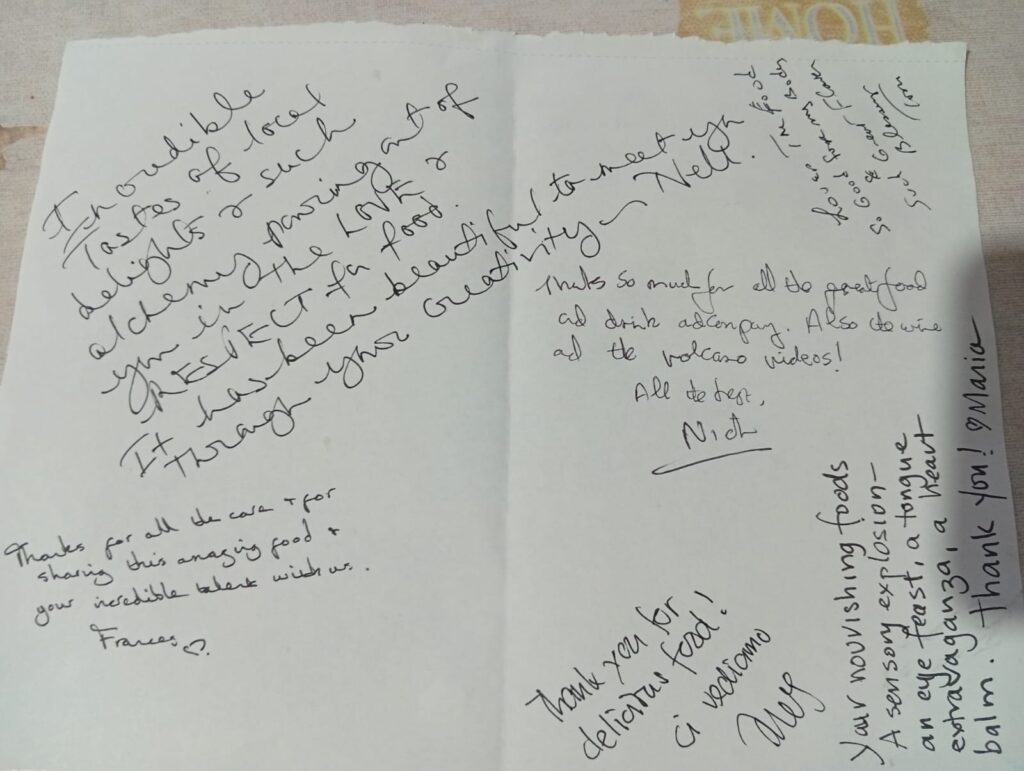 HOME
Incredible
Tastes of local
delights & such
alchemy pouring out of
you in the LOVE &
RESPECT for food.
It has been beautiful to meet you
through your creativity ~ Nell.
Thanks for all the care + for
sharing this amazing food +
your incredible talent with us.
Frances ♡.
Loved The food
So Good for my Body
& Great Flavor
Such
Thanks so much for all the great food
and drink and company. Also the wine
and the volcano videos!
All the best,
Nick
Thank you for
delicious food!
ci vediamo
Your nourishing foods
A sensory explosion –
an eye feast, a tongue
extravaganza, a heart
balm. Thank you! ♡Maria